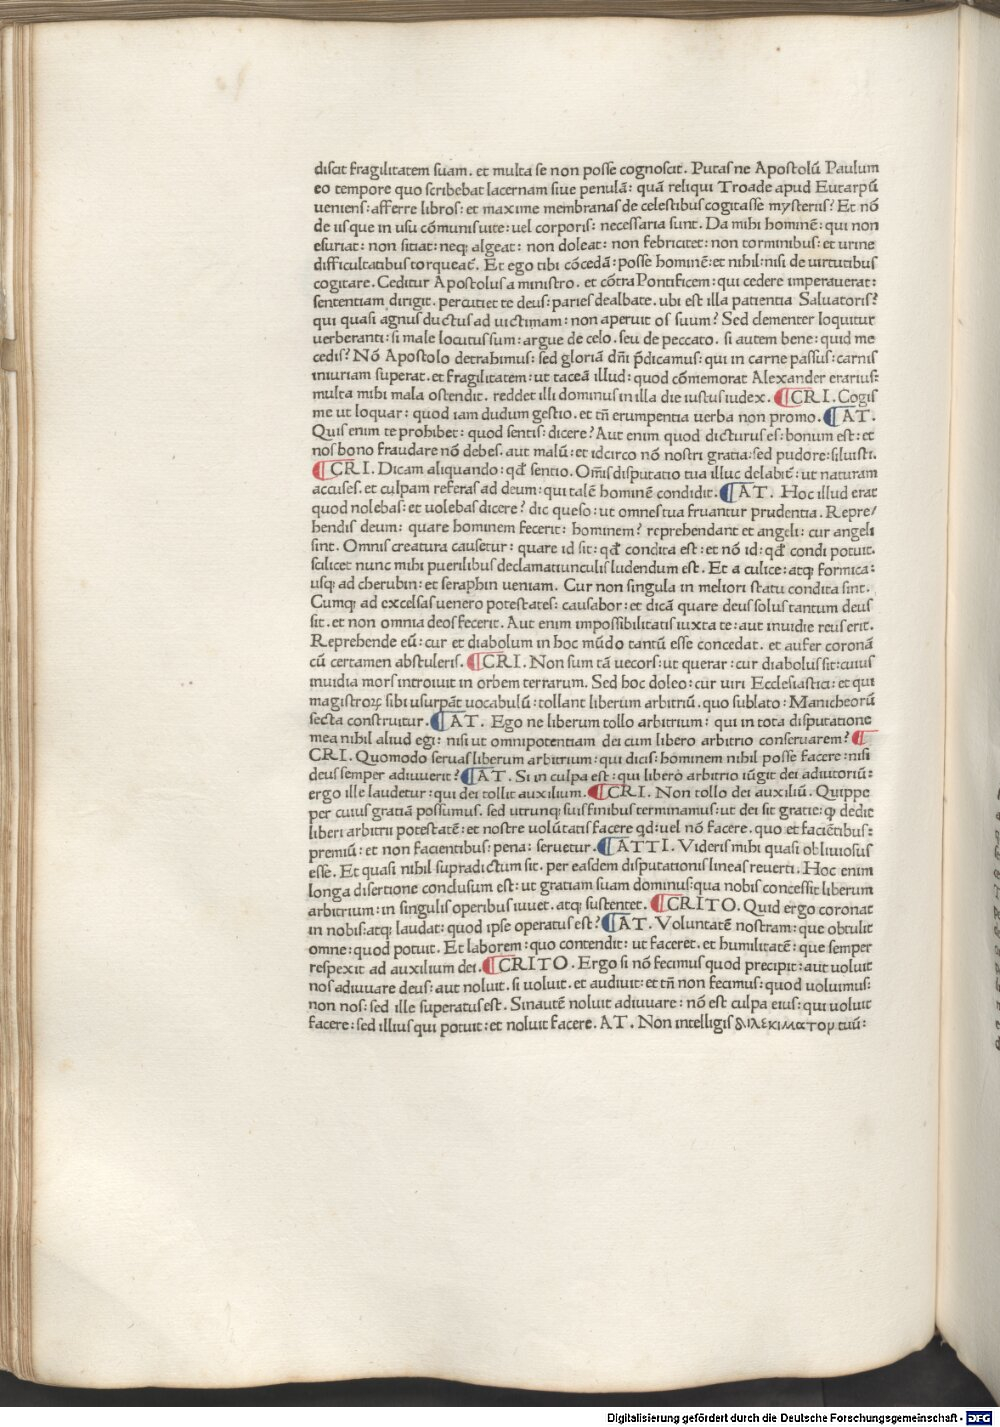 discit fragilitatem suam. et multa se non posse cognoscit. Putas ne Apostolū Paulum
eo tempore quo scribebat lacernam siue penulā: quā reliqui Troade apud Eutarpū
ueniens: afferre libros: et maxime membranas de celestibus cogitasse mysteriis? Et nō
de iis que in usu cōmunis uite: uel corporis: necessaria sunt. Da mihi hominē: qui non
esuriat: non sitiat: neqꝫ algeat: non doleat: non febricitet: non torminibus: et urine
difficultatibus torqueat᷑. Et ego tibi cōcedā: posse hominē: et nihil: nisi de uirtutibus
cogitare. Ceditur Apostolus a ministro. et cōtra Pontificem: qui cedere imperauerat:
sententiam dirigit. percutiet te deus: paries dealbate. ubi est illa patientia Saluatoris?
qui quasi agnus ductus ad uictimam: non aperuit os suum? Sed clementer loquitur
uerberanti: si male locutus sum: argue de celo. seu de peccato. si autem bene: quid me
cedis? Nō Apostolo detrahimus: sed gloriā dn̄i p̄dicamus: qui in carne passus: carnis
iniuriam superat. et fragilitatem: ut taceā illud: quod cōmemorat Alexander erarius:
multa mihi mala ostendit. reddet illi dominus in illa die iustus iudex. ¶CRI. Cogis
me ut loquar: quod iam dudum gestio. et tn̄ erumpentia uerba non promo. ¶AT.
Quis enim te prohibet: quod sentis: dicere? Aut enim quod dicturus es: bonum est: et
nos bono fraudare nō debes. aut malū: et idcirco nō nostri gratia: sed pudore: siluisti.
¶CRI. Dicam aliquando: qd̄ sentio. Om̄is disputatio tua illuc delabit᷑: ut naturam
accuses. et culpam referas ad deum: qui talē hominē condidit. ¶AT. Hoc illud erat
quod nolebas: et uolebas dicere? dic queso: ut omnes tua fruantur prudentia. Repre/
hendis deum: quare hominem fecerit: hominem? reprehendant et angeli: cur angeli
sint. Omnis creatura causetur: quare id sit: qd̄ condita est: et nō id: qd̄ condi potuit.
scilicet nunc mihi puerilibus declamatiunculis ludendum est. Et a culice: atqꝫ formica:
usqꝫ ad cherubin: et seraphin ueniam. Cur non singula in meliori statu condita sint.
Cumqꝫ ad excelsas uenero potestates: causabor: et dicā quare deus solus tantum deus
sit. et non omnia deos fecerit. Aut enim impossibilitatis iuxta te: aut inuidie reus erit.
Reprehende eū: cur et diabolum in hoc mūdo tantū esse concedat. et aufer coronā
cū certamen abstuleris. ¶CRI. Non sum tā uecors: ut querar: cur diabolus sit: cuius
inuidia mors introiuit in orbem terrarum. Sed hoc doleo: cur uiri Ecclesiastici: et qui
magistroꝝ sibi usurpāt uocabulū: tollant liberum arbitriū. quo sublato: Manicheorū
secta construitur. ¶AT. Ego ne liberum tollo arbitrium: qui in tota disputatione
mea nihil aliud egi: nisi ut omnipotentiam dei cum libero arbitrio conseruarem? ¶
CRI. Quomodo seruas liberum arbitrium: qui dicis: hominem nihil posse facere: nisi
deus semper adiuuerit? ¶AT. Si in culpa est: qui libero arbitrio iūgit dei adiutoriū:
ergo ille laudetur: qui dei tollit auxilium. ¶CRI. Non tollo dei auxiliū. Quippe
per cuius gratiā possumus. sed utrunqꝫ suis finibus terminamus: ut dei sit gratie: qꝫ dedit
liberi arbitrii potestatē: et nostre uolūtatis facere qd: uel nō facere. quo et faciētibus:
premiū: et non facientibus: pena: seruetur. ¶ATTI. Videris mihi quasi obliuiosus
esse. Et quasi nihil supradictum sit. per easdem disputationis lineas reuerti. Hoc enim
longa disertione conclusum est: ut gratiam suam dominus: qua nobis concessit liberum
arbitrium: in singulis operibus iuuet. atqꝫ sustentet. ¶CRITO. Quid ergo coronat
in nobis: atqꝫ laudat: quod ipse operatus est? ¶AT. Voluntatē nostram: que obtulit
omne: quod potuit. Et laborem: quo contendit: ut faceret. et humilitatē: que semper
respexit ad auxilium dei. ¶CRITO. Ergo si nō fecimus quod precipit: aut uoluit
nos adiuuare deus: aut noluit. si uoluit. et adiuuit: et tn̄ non fecimus: quod uoluimus:
non nos: sed ille superatus est. Sin autē noluit adiuuare: nō est culpa eius: qui uoluit
facere: sed illius qui potuit: et noluit facere. AT. Non intelligis διλεκιματον tuū:
Digitalisierung gefördert durch die Deutsche Forschungsgemeinschaft - DFG